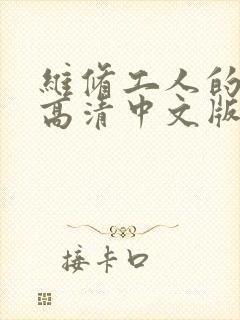 維脩工人的
高清中文版
接卡口